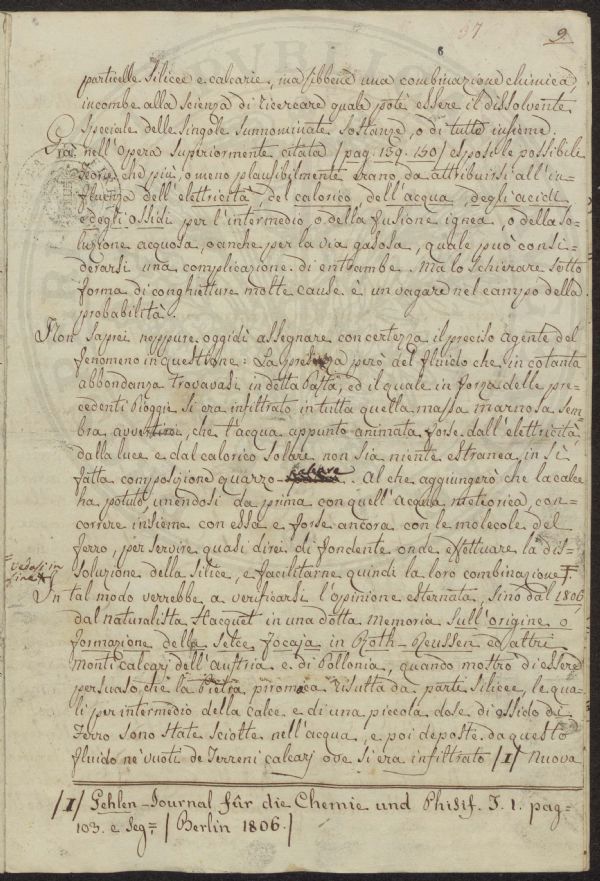 37
9.
particelle Silicee e calcarie, ma sibbene una combinazione chimica,
incombe alla Scienza di ricercare quale potè essere il dissolvente
Speciale delle Singole sunnominate sostanze, o di tutte insieme.
Già nell'Opera Superiormente citata /pag. 159. 150/ esposi le possibile
teorie, che più, o meno plausibilmente erano da attribuirsi all'in-
fluenza dell'elettricità del calorico dell'acqua, degli acidi
e degli ossidi per l'intermedio, o della fusione ignea, o della so-
luzione acquosa, o anche per la via gasosa, quale può consi-
derarsi una complicazione di entrambe. Ma lo Schierare sotto
forma di conghietture molte cause è un vagare nel campo della
probabilità.
Non saprei neppure oggidì assegnare con certezza il preciso agente del
fenomeno in questione: La presenza però del fluido che in cotanta
abbondanza trovavasi in detta Pasta, ed il quale in forza delle pre-
cedenti Pioggie si era infiltrato in tutta quella massa marnosa sem
bra avvertire, che l'acqua appunto animata forse dall'elettricità,
dalla luce e dal calorico Solare non sia niente estranea in sì
fatta composizione quarzo-calcare. Al che aggiungerò che la calce
ha potuto, unendosi da prima con quell'Acqua meteorica, con-
correre insieme con essa e forse ancora con le molecole del
ferro, per servire quasi direi di fondente onde effettuare la dis-
soluzione della Silice, e facilitarne quindi la loro combinazione
= vedasi in
fine
In tal modo verrebbe a verificarsi l'opinione esternata, sino dal 1806
dal naturalista Hacquet in una dotta Memoria sull'origine o
formazione della Selce Focaja in Roth-Reussen ed altri
Monti calcarj dell'Austria e di Pollonia, quando mostrò di essere
persuaso, che la Pietra piromaca risulta da parti Silicee, le qua-
li per intermedio della calce e di una piccola dose di ossido di
Ferro sono state sciolte nell'acqua, e poi deposte da questo
fluido ne' vuoti de' Terreni calcarj ove si era infiltrato /1/ Nuova
/1/ Gehlen-Journal für die Chemie und Phisik. T. 1. pag=
103. e Seg= / Berlin 1806./